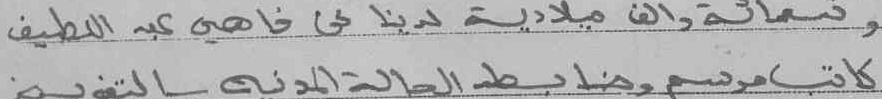 وتسعمائة والف ميلادية لدينا نحن فاهمي عبد اللطيف
كاتب مرسم وضابط الحالة المدنية بالتفويض